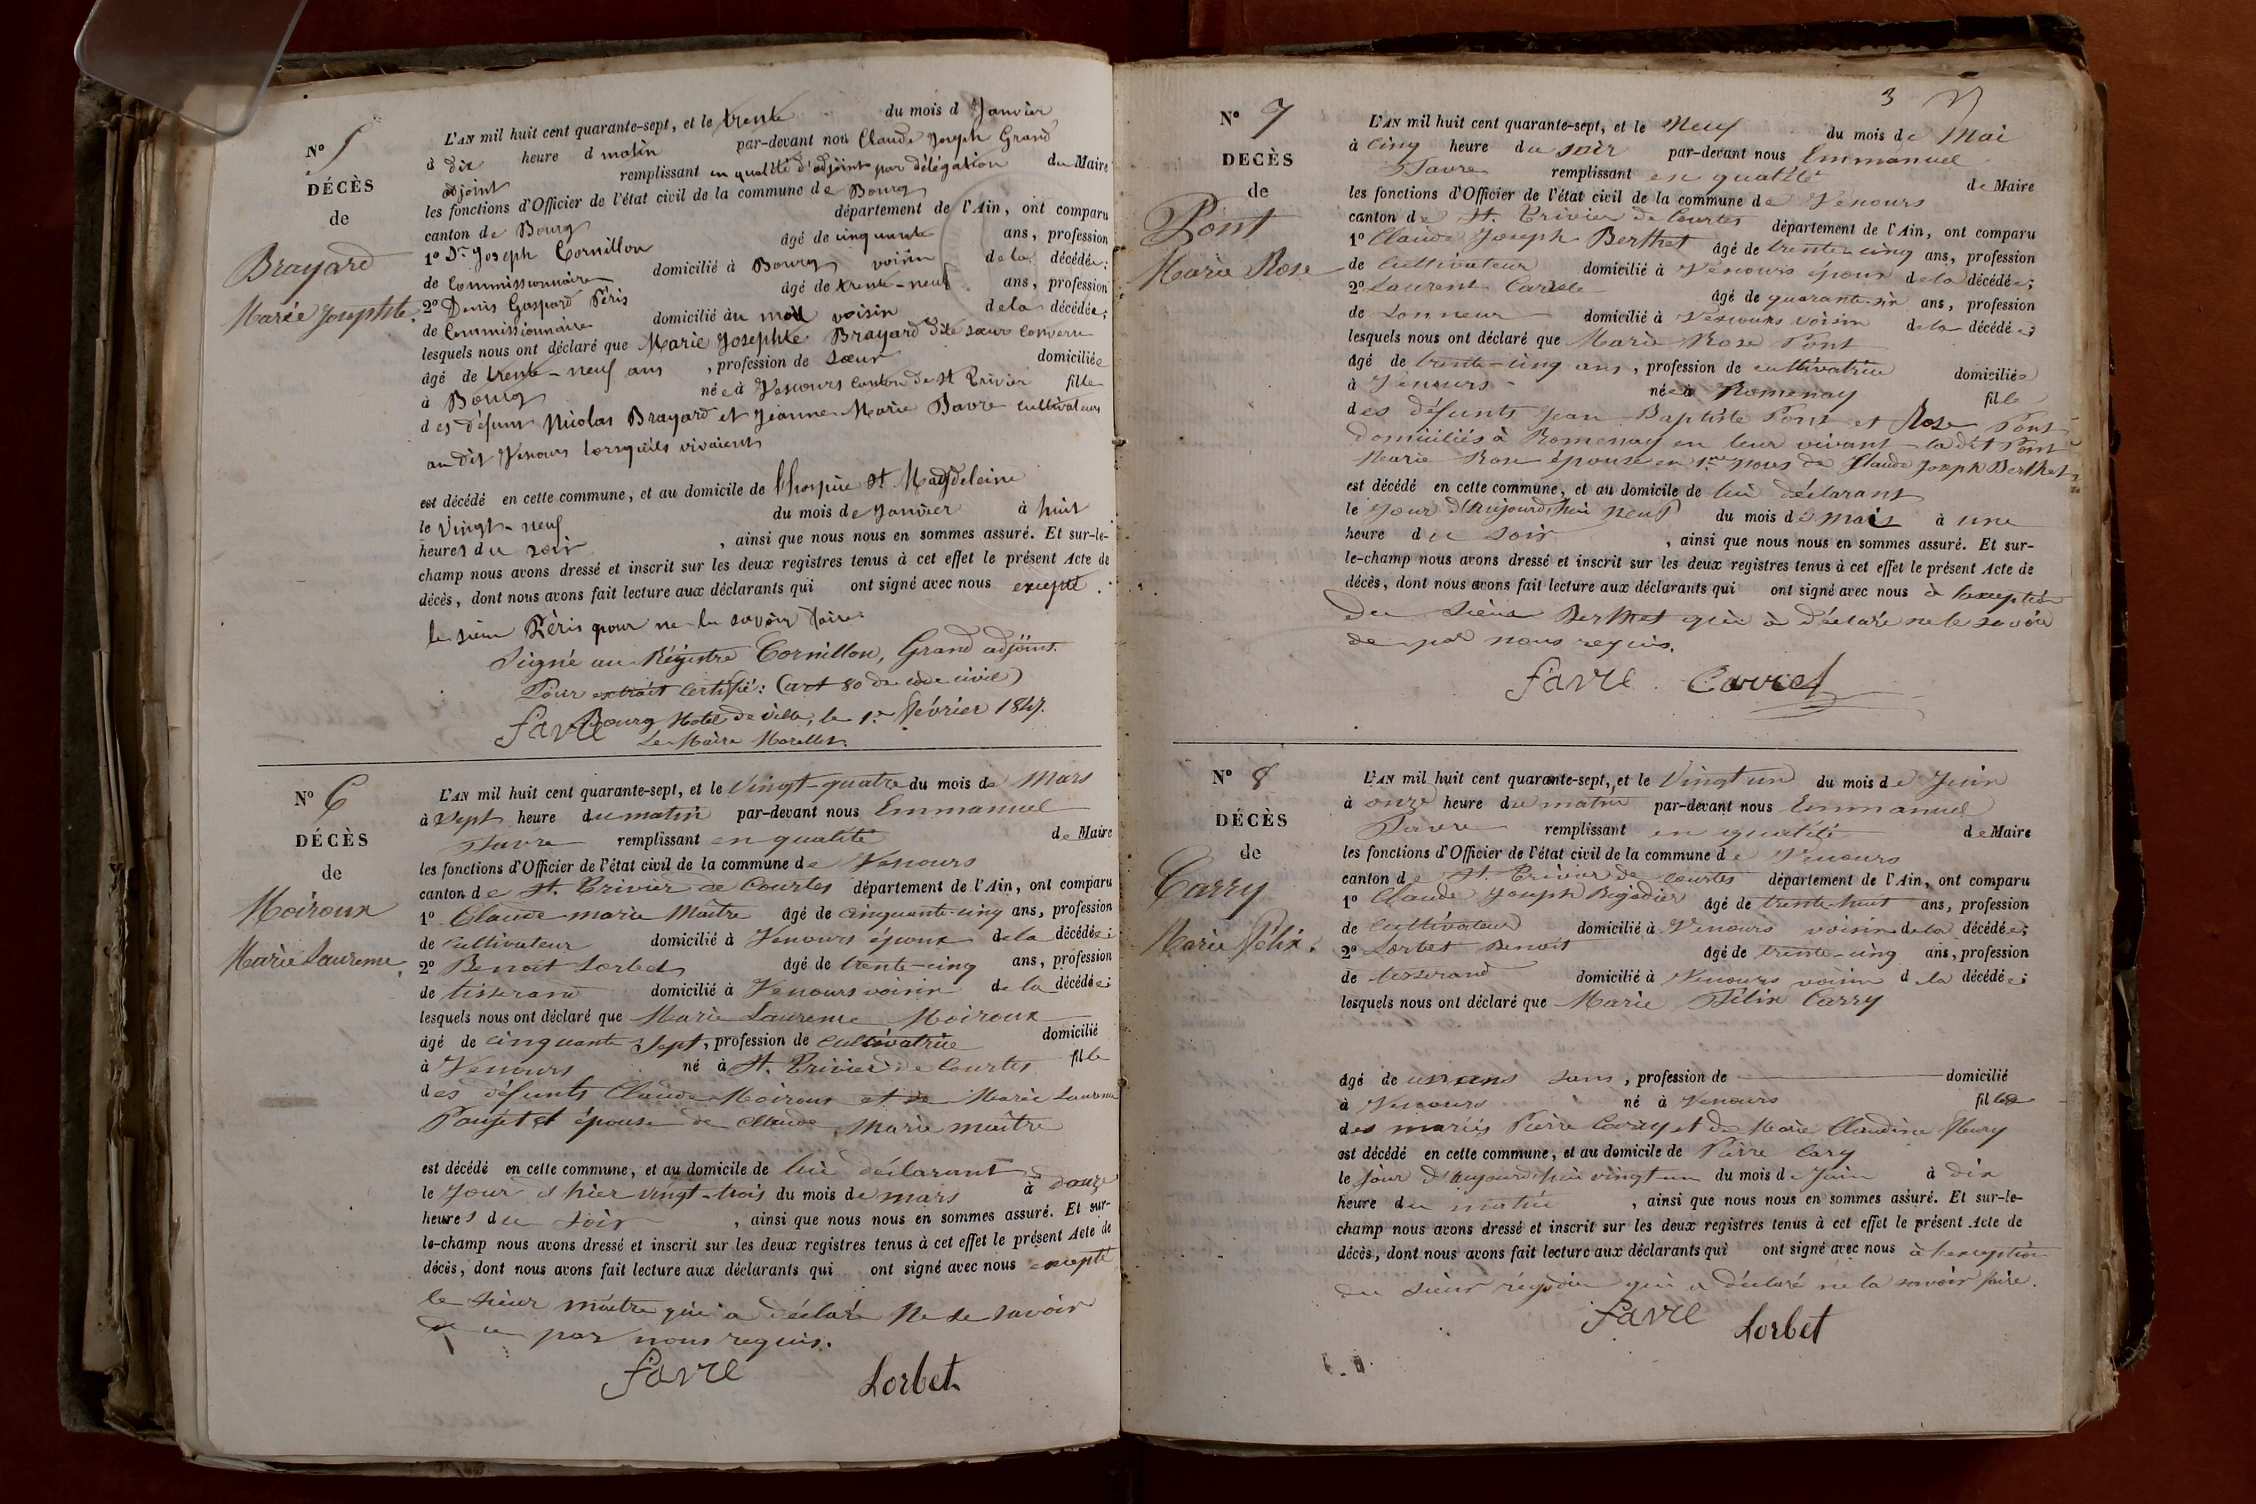 No 5
DÉCÈS
de
Brayard
Marie Josephte.
L'AN mil huit cent quarante-sept, et le trente du mois d Janvier
à dix heure d matin par-devant nou Claude Joseph Grand
adjoint remplissant en qualité d'adjoint par délégation du Maire
les fonctions d'Officier de l'état civil de la commune de Bourg
canton de Bourg département de l'Ain, ont comparu
1o Sr Joseph Cornillon âgé de cinquante ans, profession
de Commissionnaire domicilié à Bourg voisin de la décédée;
2o Denis Gaspard Féris âgé de trente-neuf ans, profession
de Commissionnaire domicilié au voisin de la décédée;
lesquels nous ont déclaré que Marie Josephte Brayard dite sœur
âgé de trente-neuf ans, profession de sœur domiciliée
à Bourg née à Vescours canton de St Trivier fille
des défunt Nicolas Brayard et Jeanne-Marie Favre cultivateurs
au dit Vescours lorsqu'ils vivaient
est décédé en cette commune, et au domicile de l'hospice St Magdeleine
le vingt-neuf du mois de Janvier à huit
heures du soir, ainsi que nous nous en sommes assuré. Et sur-le-
champ nous avons dressé et inscrit sur les deux registres tenus à cet effet le présent Acte de
décès, dont nous avons fait lecture aux déclarants qui ont signé avec nous excepté
le sieur Féris pour ne le savoir faire.
Signé au Régistre Cornillon, Grand adjoint.
Pour extrait certifié: (art 80 du code civil)
Bourg Hotel de Ville, le 1er Février 1847.
favre Le Maire
No 6
DÉCÈS
de
Moiroux
Marie Laurence
L'AN mil huit cent quarante-sept, et le vingt-quatre du mois de Mars
à sept heure du matin par-devant nous Emmanuel
Favre remplissant en qualité de Maire
les fonctions d'Officier de l'état civil de la commune de Vescours
canton de St. Trivier de Courtes département de l'Ain, ont comparu
1o Claude marie Maître âgé de cinquante-cinq ans, profession
de cultivateur domicilié à Vescours époux de la décédée;
2o Benoit Lorbet âgé de trente-cinq ans, profession
de tisserand domicilié à Vescours voisin de la décédée;
lesquels nous ont déclaré que Marie Laurence Moiroux
âgé de cinquante sept, profession de cultivatrice domicilié
à Vescours né à St. Trivier de Courtes fille
des défunts Claude Moiroux et de Marie Laurence
et épouse de Claude Marie maître
est décédé en cette commune, et au domicile de lui déclarant
le jour d'hier vingt-trois du mois de mars à onze
heures du soir, ainsi que nous nous en sommes assuré. Et sur-
le-champ nous avons dressé et inscrit sur les deux registres tenus à cet effet le présent Acte de
décès, dont nous avons fait lecture aux déclarants qui ont signé avec nous excepté
le sieur maître qui a déclaré ne le savoir
de ce par nous requis.
favre Lorbet
3
No 7
DECÈS
de
Pont
Marie Rose
L'AN mil huit cent quarante-sept, et le Neuf du mois de Mai
à cinq heure du soir par-devant nous Emmanuel
Favre remplissant en qualité de Maire
les fonctions d'Officier de l'état civil de la commune de Vescours
canton de St. Trivier de Courtes département de l'Ain, ont comparu
1o Claude Joseph Berthet âgé de trente-cinq ans, profession
de Cultivateur domicilié à Vescours époux de la décédée;
2o Laurent âgé de quarante six ans, profession
de domicilié à Vescours voisin de la décédée;
lesquels nous ont déclaré que Marie Rose Pont
âgé de trente-cinq ans, profession de cultivatrice domiciliée
à Vescours née à Romenay fille
des défunts Jean Baptiste Pont et Rose Pont
domiciliés à Romenay en leur vivant la dit Pont
Marie Rose épouse en 1res noces de Claude Joseph Berthet
est décédé en cette commune, et au domicile de lui déclarant
le jour d'aujourd'hui neuf du mois de mai à une
heure du soir, ainsi que nous nous en sommes assuré. Et sur-
le-champ nous avons dressé et inscrit sur les deux registres tenus à cet effet le présent Acte de
décès, dont nous avons fait lecture aux déclarants qui ont signé avec nous à l'exception
du sieur Berthet qui à déclaré ne le savoir
de par nous requis.
favre Carrel
No 8
DÉCÈS
de
Carry
Marie Félix.
L'AN mil huit cent quarante-sept, et le Vingt un du mois de Juin
à onze heure du matin par-devant nous Emmanuel
Favre remplissant en qualité de Maire
les fonctions d'Officier de l'état civil de la commune de Vescours
canton de St. Trivier de Courtes département de l'Ain, ont comparu
1o Claude Joseph âgé de trente-huit ans, profession
de Cultivateur domicilié à Vescours voisin de la décédée;
2o Lorbet Benoit âgé de trente-cinq ans, profession
de tisserand domicilié à Vescours voisin d la décédée;
lesquels nous ont déclaré que Marie Félix Carry
âgé de, profession de domicilié
à Vescours né à Vescours fille
des mariés Pierre Carry et de Marie Claudine Fleury
est décédé en cette commune, et au domicile de Pierre Cary
le jour d'aujourd'hui vingt-un du mois de Juin à dix
heure du matin, ainsi que nous nous en sommes assuré. Et sur-le-
champ nous avons dressé et inscrit sur les deux registres tenus à cet effet le présent Acte de
décès, dont nous avons fait lecture aux déclarants qui ont signé avec nous à l'exception
du sieur qui a déclaré ne la savoir faire.
favre Lorbet